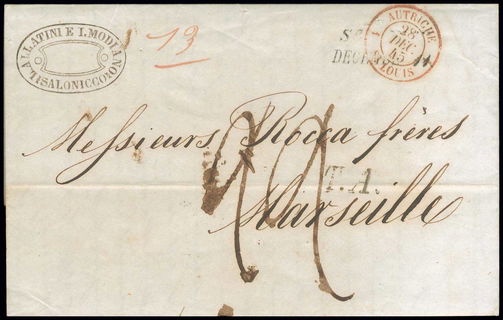 ALLATINI E I. MODIANO
SALONICCO
13
DECEM
AUTRICHE
28
DEC
45
LOUIS
Messieurs Rocca frères
T.A.
Marseille